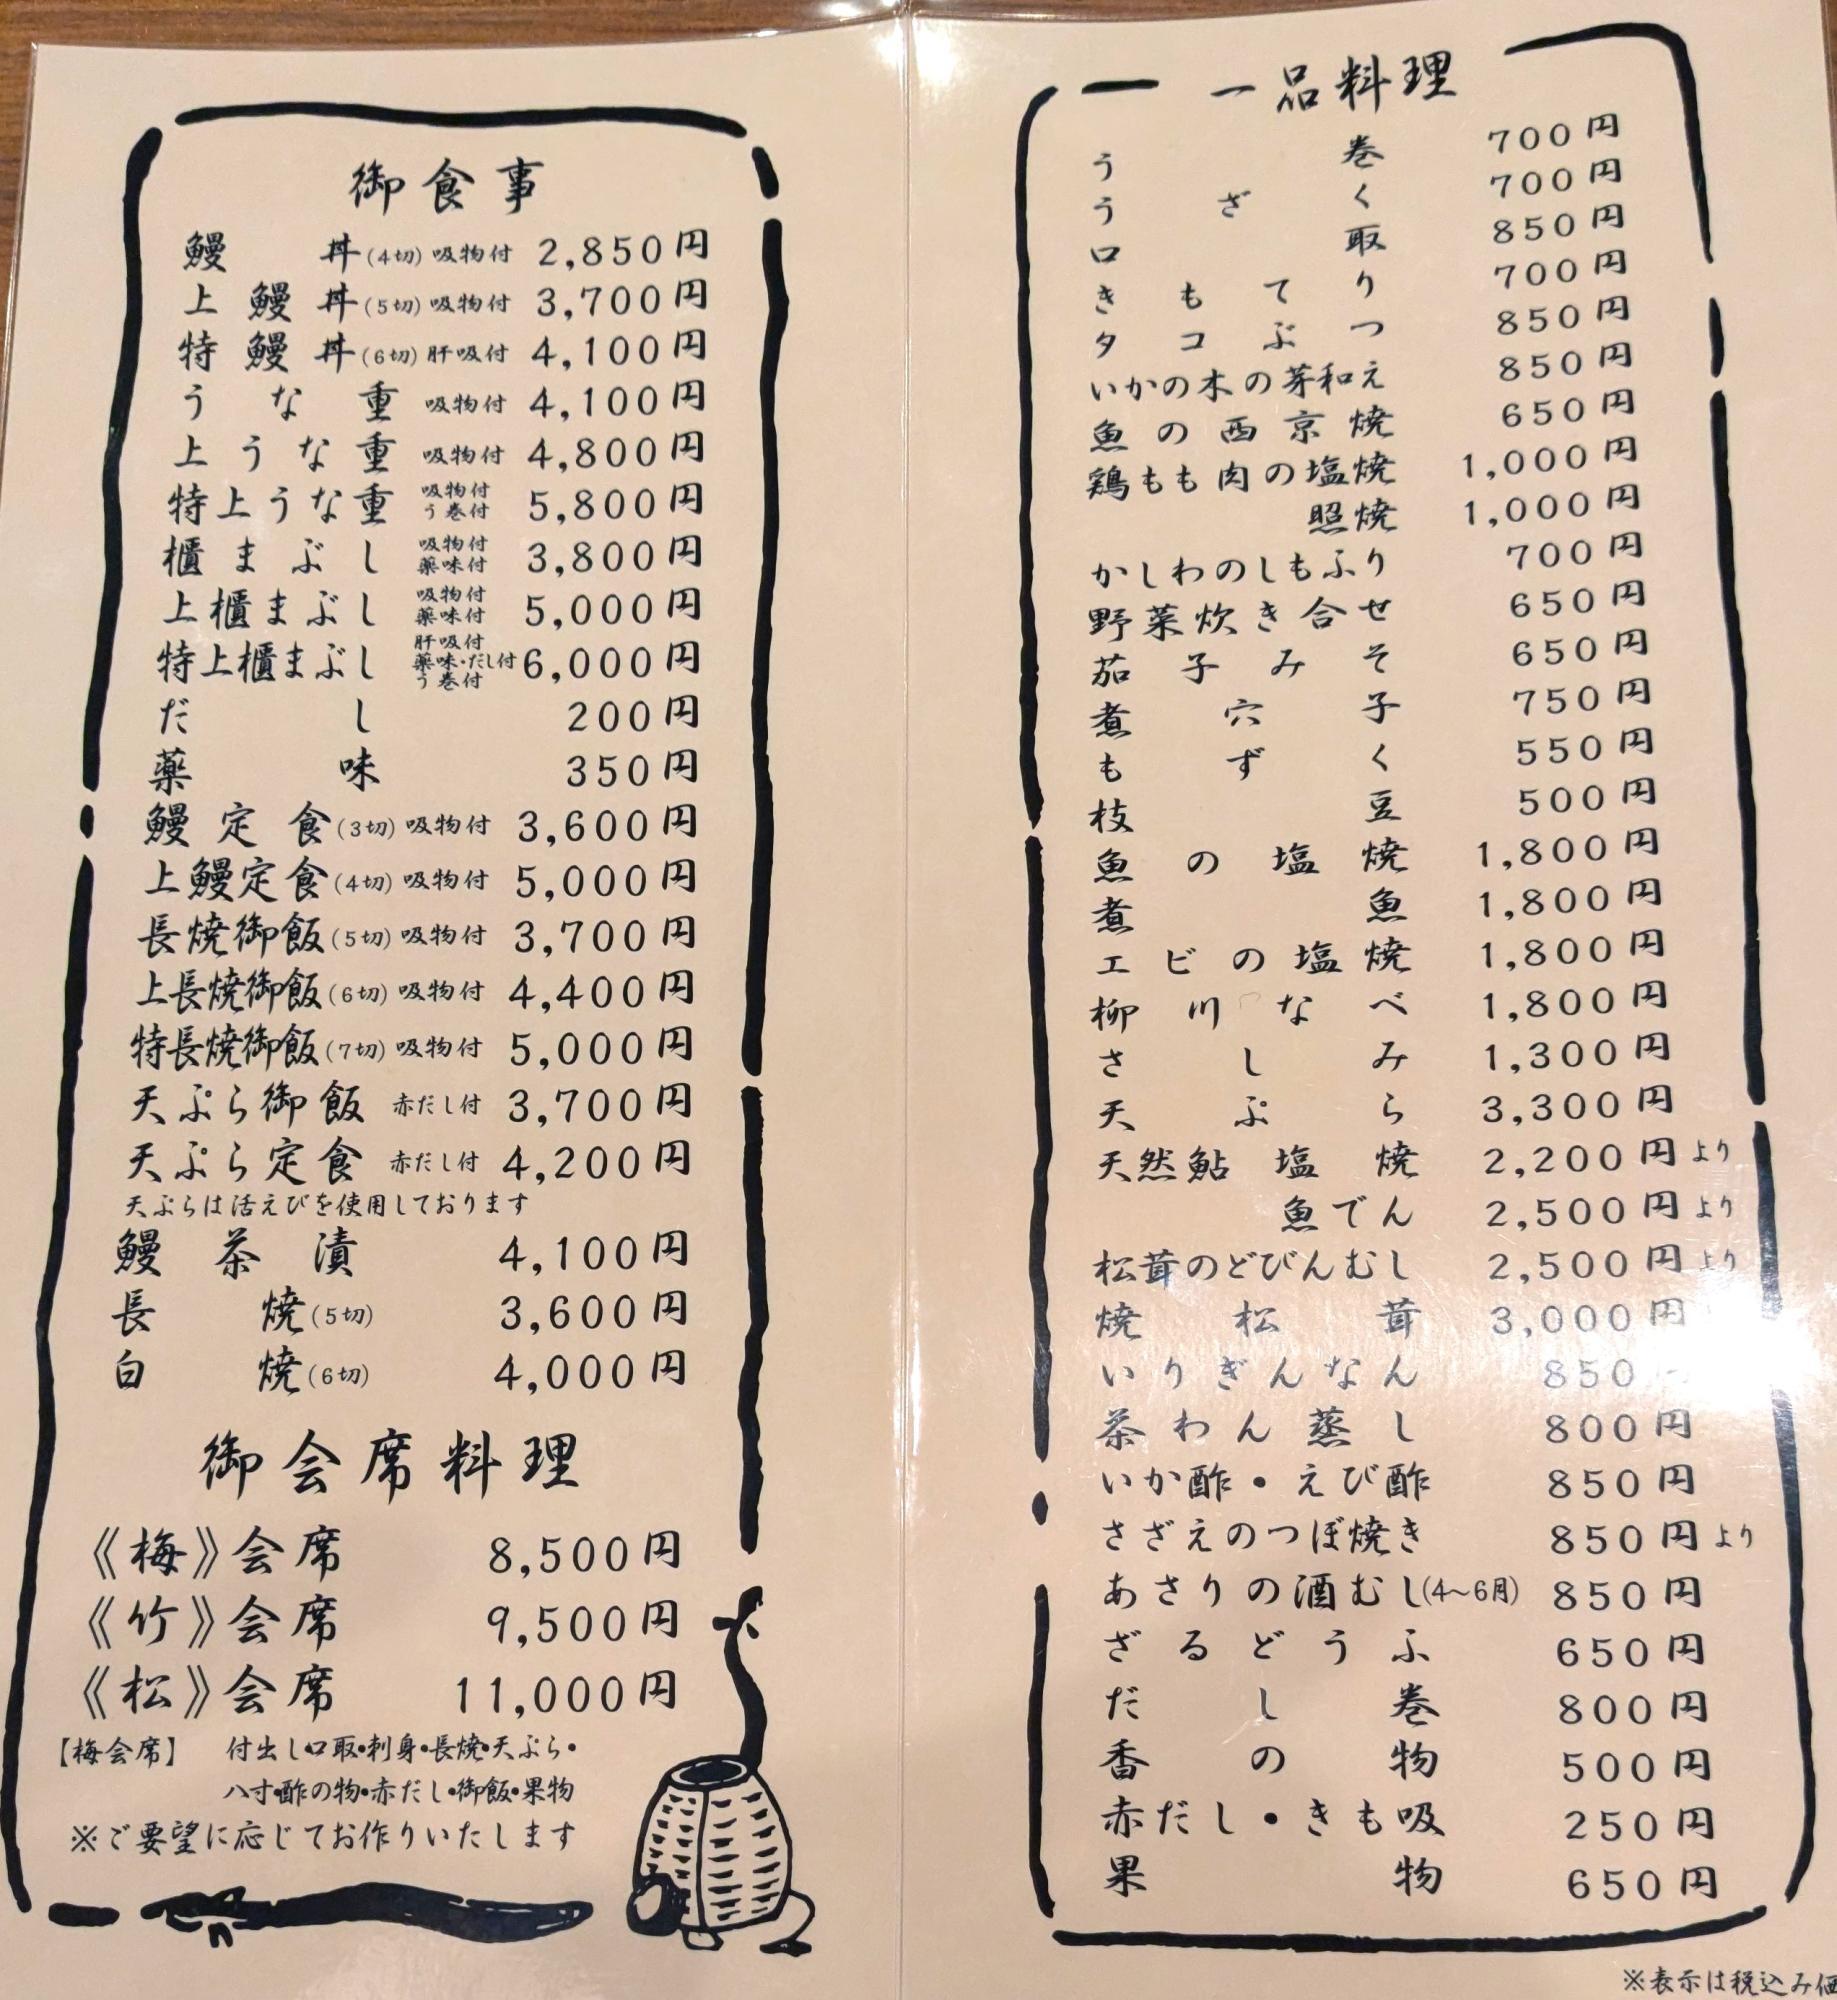 御食事
鰻丼(4切)吸物付 2,850円
上鰻丼(5切)吸物付 3,700円
特鰻丼(6切)肝吸付 4,100円
うな重 吸物付 4,100円
上うな重 吸物付 4,800円
特上うな重 吸物付 う巻付 5,800円
櫃まぶし 吸物付 薬味付 3,800円
上櫃まぶし 吸物付 薬味付 5,000円
特上櫃まぶし 肝吸付 薬味・だし付 う巻付 6,000円
だし 200円
薬味 350円
鰻定食(3切)吸物付 3,600円
上鰻定食(4切)吸物付 5,000円
長焼御飯(5切)吸物付 3,700円
上長焼御飯(6切)吸物付 4,400円
特長焼御飯(7切)吸物付 5,000円
天ぷら御飯 赤だし付 3,700円
天ぷら定食 赤だし付 4,200円
天ぷらは活えびを使用しております
鰻茶漬 4,100円
長焼(5切) 3,600円
白焼(6切) 4,000円
御会席料理
《梅》会席 8,500円
《竹》会席 9,500円
《松》会席 11,000円
【梅会席】 付出し・口取・刺身・長焼・天ぷら・
八寸・酢の物・赤だし・御飯・果物
※ご要望に応じてお作りいたします
一品料理
う巻 700円
うざく 700円
口取 850円
きもてり 700円
タコぶつ 850円
いかの木の芽和え 850円
魚の西京焼 650円
鶏もも肉の塩焼 1,000円
照焼 1,000円
かしわのしもふり 700円
野菜炊き合せ 650円
茄子みそ 650円
煮穴子 750円
もずく 550円
枝豆 500円
魚の塩焼 1,800円
煮魚 1,800円
エビの塩焼 1,800円
柳川なべ 1,800円
さしみ 1,300円
天ぷら 3,300円
天然鮎塩焼 2,200円より
魚でん 2,500円より
松茸のどびんむし 2,500円より
焼松茸 3,000円
いりぎんなん 850
茶わん蒸し 800円
いか酢・えび酢 850円
さざえのつぼ焼き 850円より
あさりの酒むし(4〜6月) 850円
ざるどうふ 650円
だし巻 800円
香の物 500円
赤だし・きも吸 250円
果物 650円
※表示は税込み価